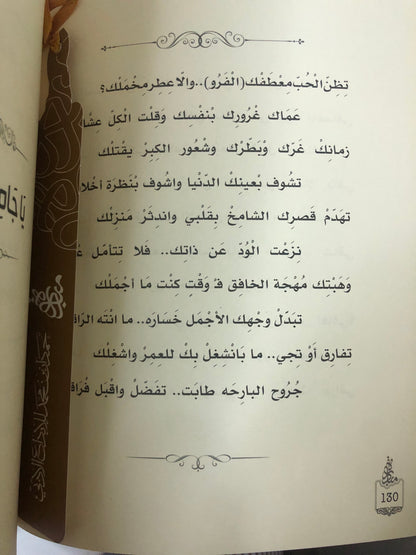 تِظِنّ الْحُبّ مِعْطَفْك (الْفَرُو).. والّا عِطر مخْمَلْك؟
عَمَاك غْرُورِك بْنَفْسِك وَقْلت الْكِلّ
زمانِكْ غَرّك وْبَطّرْك وشْعُور الكِبِرْ يِقْتلْك
تشُوف بْعينكْ الدّنْيا واشُوف بْنَظْرة
تهَدّمْ قَصرك الشّامخْ بقَلْبي واندِثَرْ مَنزلْك
نزعْت الْوُدّ عَن ذاتِك.. فَلا تتأمّل
وهَبْتِك مُهْجَة الخافِق فـ وَقْتٍ كِنْت مَا أجْمَلْك
تبَدّلْ وجْهك الأجْمَل خَسَاره.. ما انْته
تفارق أوْ تِجي.. ما بَانْشِغِلْ بِكْ للعِمرْ واشْغِلْك
جْرُوح البارِحه طابَت.. تفَضّلْ واقْبِل
130